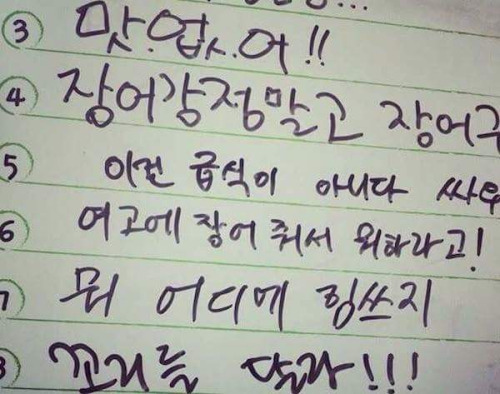 ③ 맛.업.서.어!!
④ 장어강정말고 장어구
⑤ 이건 급식이 아니다 싸우
⑥ 여고에 장어 줘서 뭐하라고!
뭐 어디에 힘쓰지
꼬리를 달라!!!